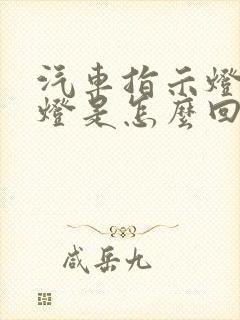 汽車指示燈
燈是怎麼回
咸岳九